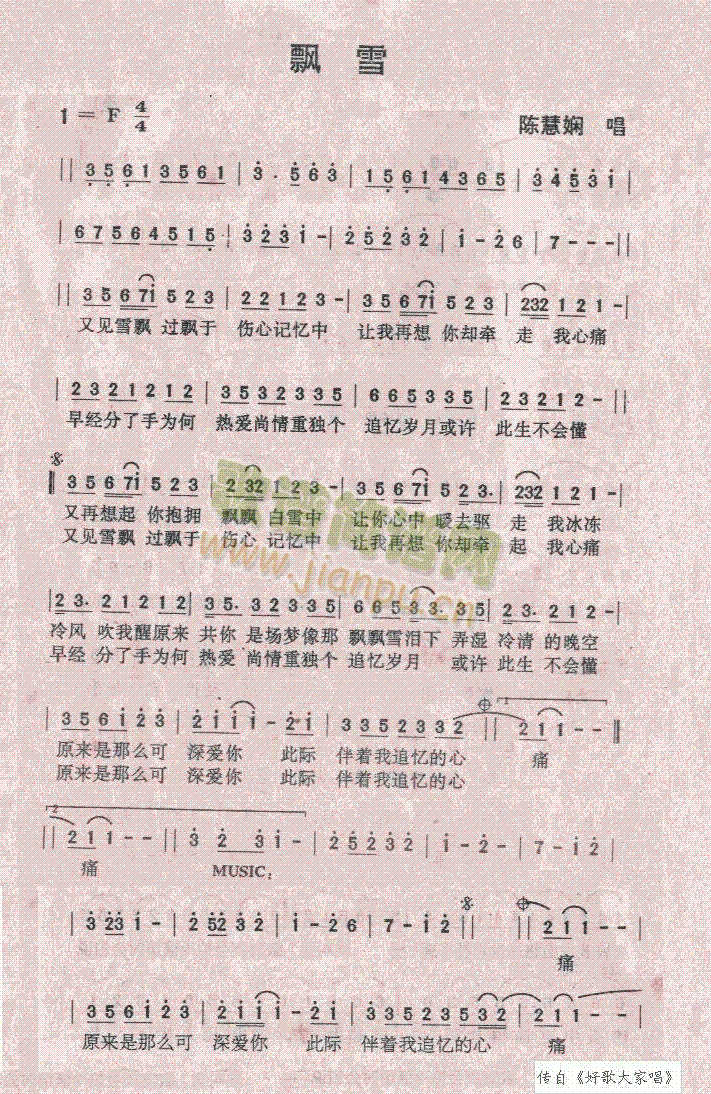 飘 雪
1 = F 4/4
陈慧娴 唱
|| 3 5 6 1 3 5 6 1 | 3 · 5 6 3 | 1 5 6 1 4 3 6 5 | 3 4 5 3 1 |
| 6 7 5 6 4 5 1 5 | 3 2 3 1 - | 2 5 2 3 2 | 1 - 2 6 | 7 - - - ||
|| 3 5 6 7 1 5 2 3 | 2 2 1 2 3 - | 3 5 6 7 1 5 2 3 | 232 1 2 1 |
又见雪飘 过飘于 伤心记忆中 让我再想 你却牵 走 我心痛
| 2 3 2 1 2 1 2 | 3 5 3 2 3 3 5 | 6 6 5 3 3 5 | 2 3 2 1 2 - ||
早经分了手为何 热爱尚情重独个 追忆岁月或许 此生不会懂
3 5 6 7 1 5 2 3 | 2 32 1 2 3 - | 3 5 6 7 1 5 2 3. | 232 1 2 1 |
又再想起 你抱拥 飘飘 白雪中 让你心中 暖去驱 走 我冰冻
又见雪飘 过飘于 伤心 记忆中 让我再想 你却牵 起 我心痛
歌谱简谱网
www.jianpu.cn
| 2 3. 2 1 2 1 2 | 3 5. 3 2 3 3 5 | 6 6 5 3 3. 3 5 | 2 3. 2 1 2 1 |
冷风 吹我醒原来 共你 是场梦像那 飘飘雪泪下 弄湿 冷清 的晚空
早经 分了手为何 热爱 尚情重独个 追忆岁月 或许 此生 不会懂
| 3 5 6 1 2 3 | 2 1 1 1 - 2 1 | 3 3 5 2 3 3 2 || 1 2 1 1 - - ||
原来是那么可 深爱你 此际 伴着我追忆的心 痛
原来是那么可 深爱你 此际 伴着我追忆的心
2
|| 2 1 1 - - || 3 2 3 1 - | 2 5 2 3 2 | 1 - 2 - | 7 - 1 2 |
痛 MUSIC:
| 3 23 1 - | 2 52 3 2 | 1 - 2 6 | 7 - 1 2 || || 2 1 1 - - |
痛
| 3 5 6 1 2 3 | 2 1 1 1 - 2 1 | 3 3 5 2 3 5 3 2 | 2 1 1 - - ||
原来是那么可 深爱你 此际 伴着我追忆的心 痛
传自《好歌大家唱》